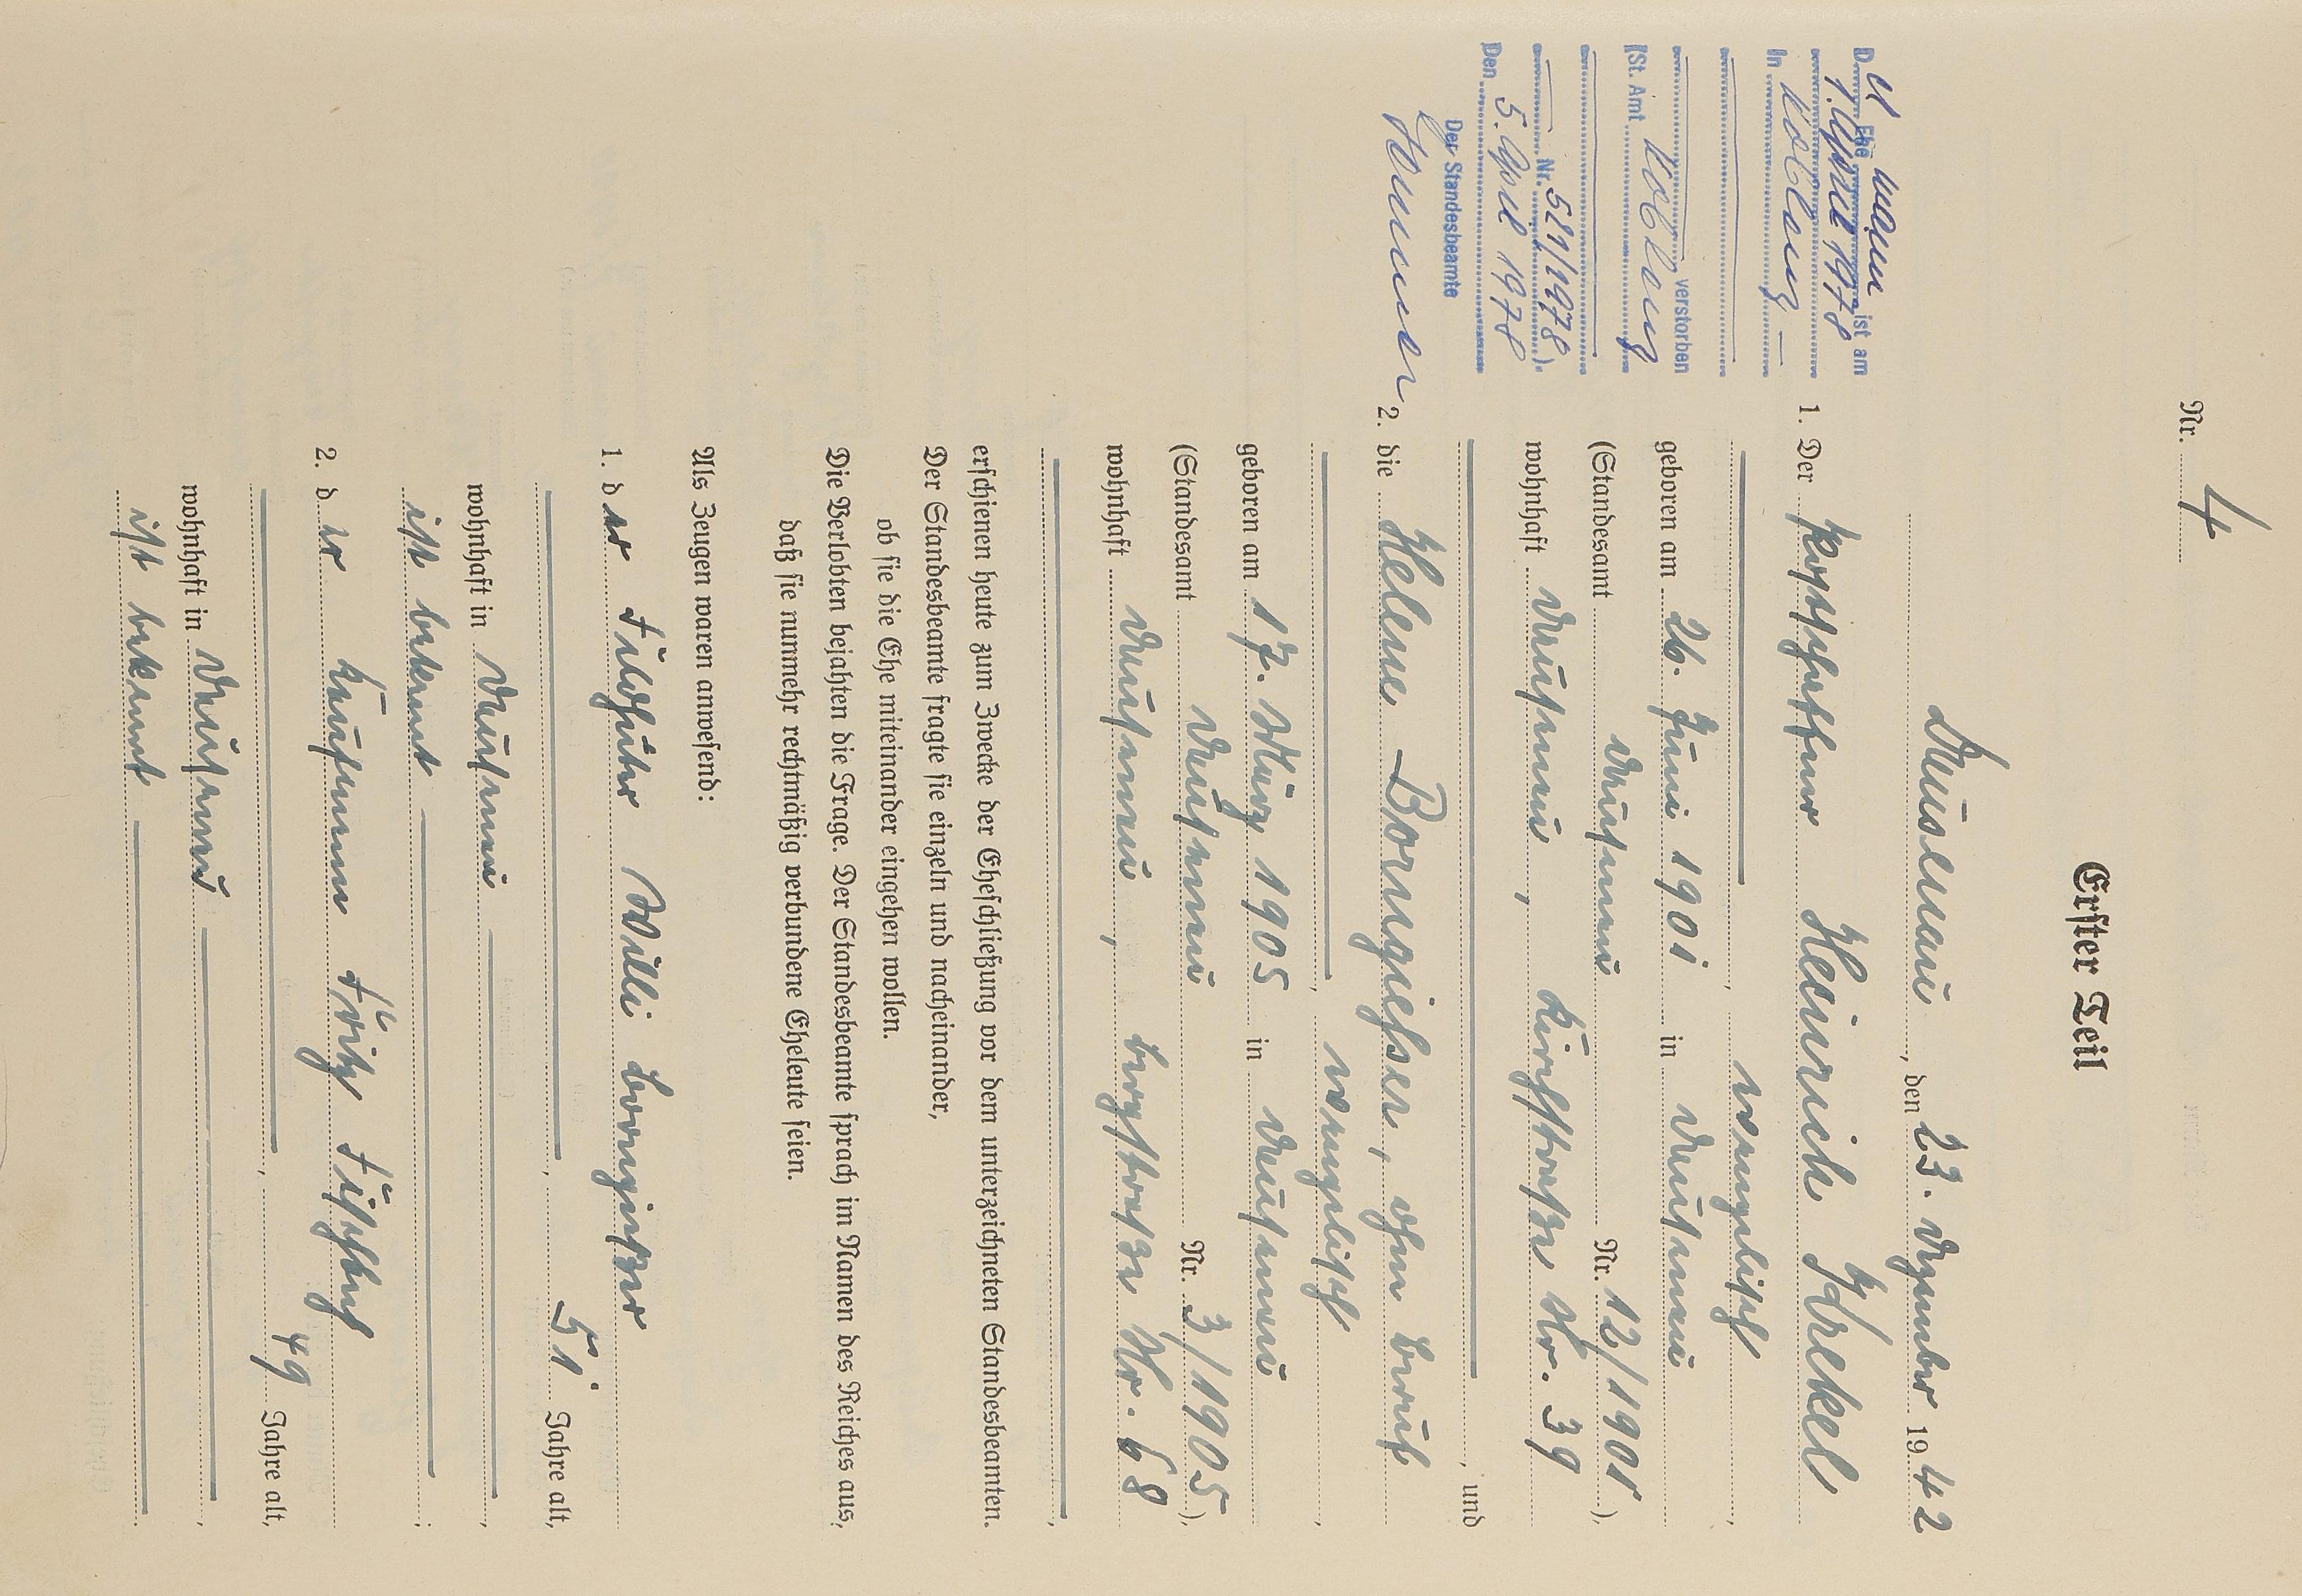 Nr. 4
Erster Teil
Dausenau, den 23. Dezember 1942
1. Der Postschaffner Heinrich Krekel
, evangelisch,
geboren am 26. Juni 1901 in Dausenau
(Standesamt Dausenau Nr. 12/1901),
wohnhaft Dausenau, Kirchstraße Nr. 39
, und
2. die Helene Borngiesser, ohne Beruf
, evangelisch,
geboren am 17. März 1905 in Dausenau
(Standesamt Dausenau Nr. 3/1905),
wohnhaft Dausenau, Bergstraße Nr. 68
,
erschienen heute zum Zwecke der Eheschließung vor dem unterzeichneten Standesbeamten.
Der Standesbeamte fragte sie einzeln und nacheinander,
ob sie die Ehe miteinander eingehen wollen.
Die Verlobten bejahten die Frage. Der Standesbeamte sprach im Namen des Reiches aus,
daß sie nunmehr rechtmäßig verbundene Eheleute seien.
Als Zeugen waren anwesend:
1. der Feldhüter Willi Borngießer
, 51 Jahre alt,
wohnhaft in Dausenau,
ist bekannt;
2. der Kaufmann Fritz Fischbach
, 49 Jahre alt,
wohnhaft in Dausenau,
ist bekannt.
Der Ehemann ist am
1. April 1978
In Koblenz
verstorben
(St. Amt Koblenz
Nr. 581/1978).
Den 5. April 1978
Der Standesbeamte